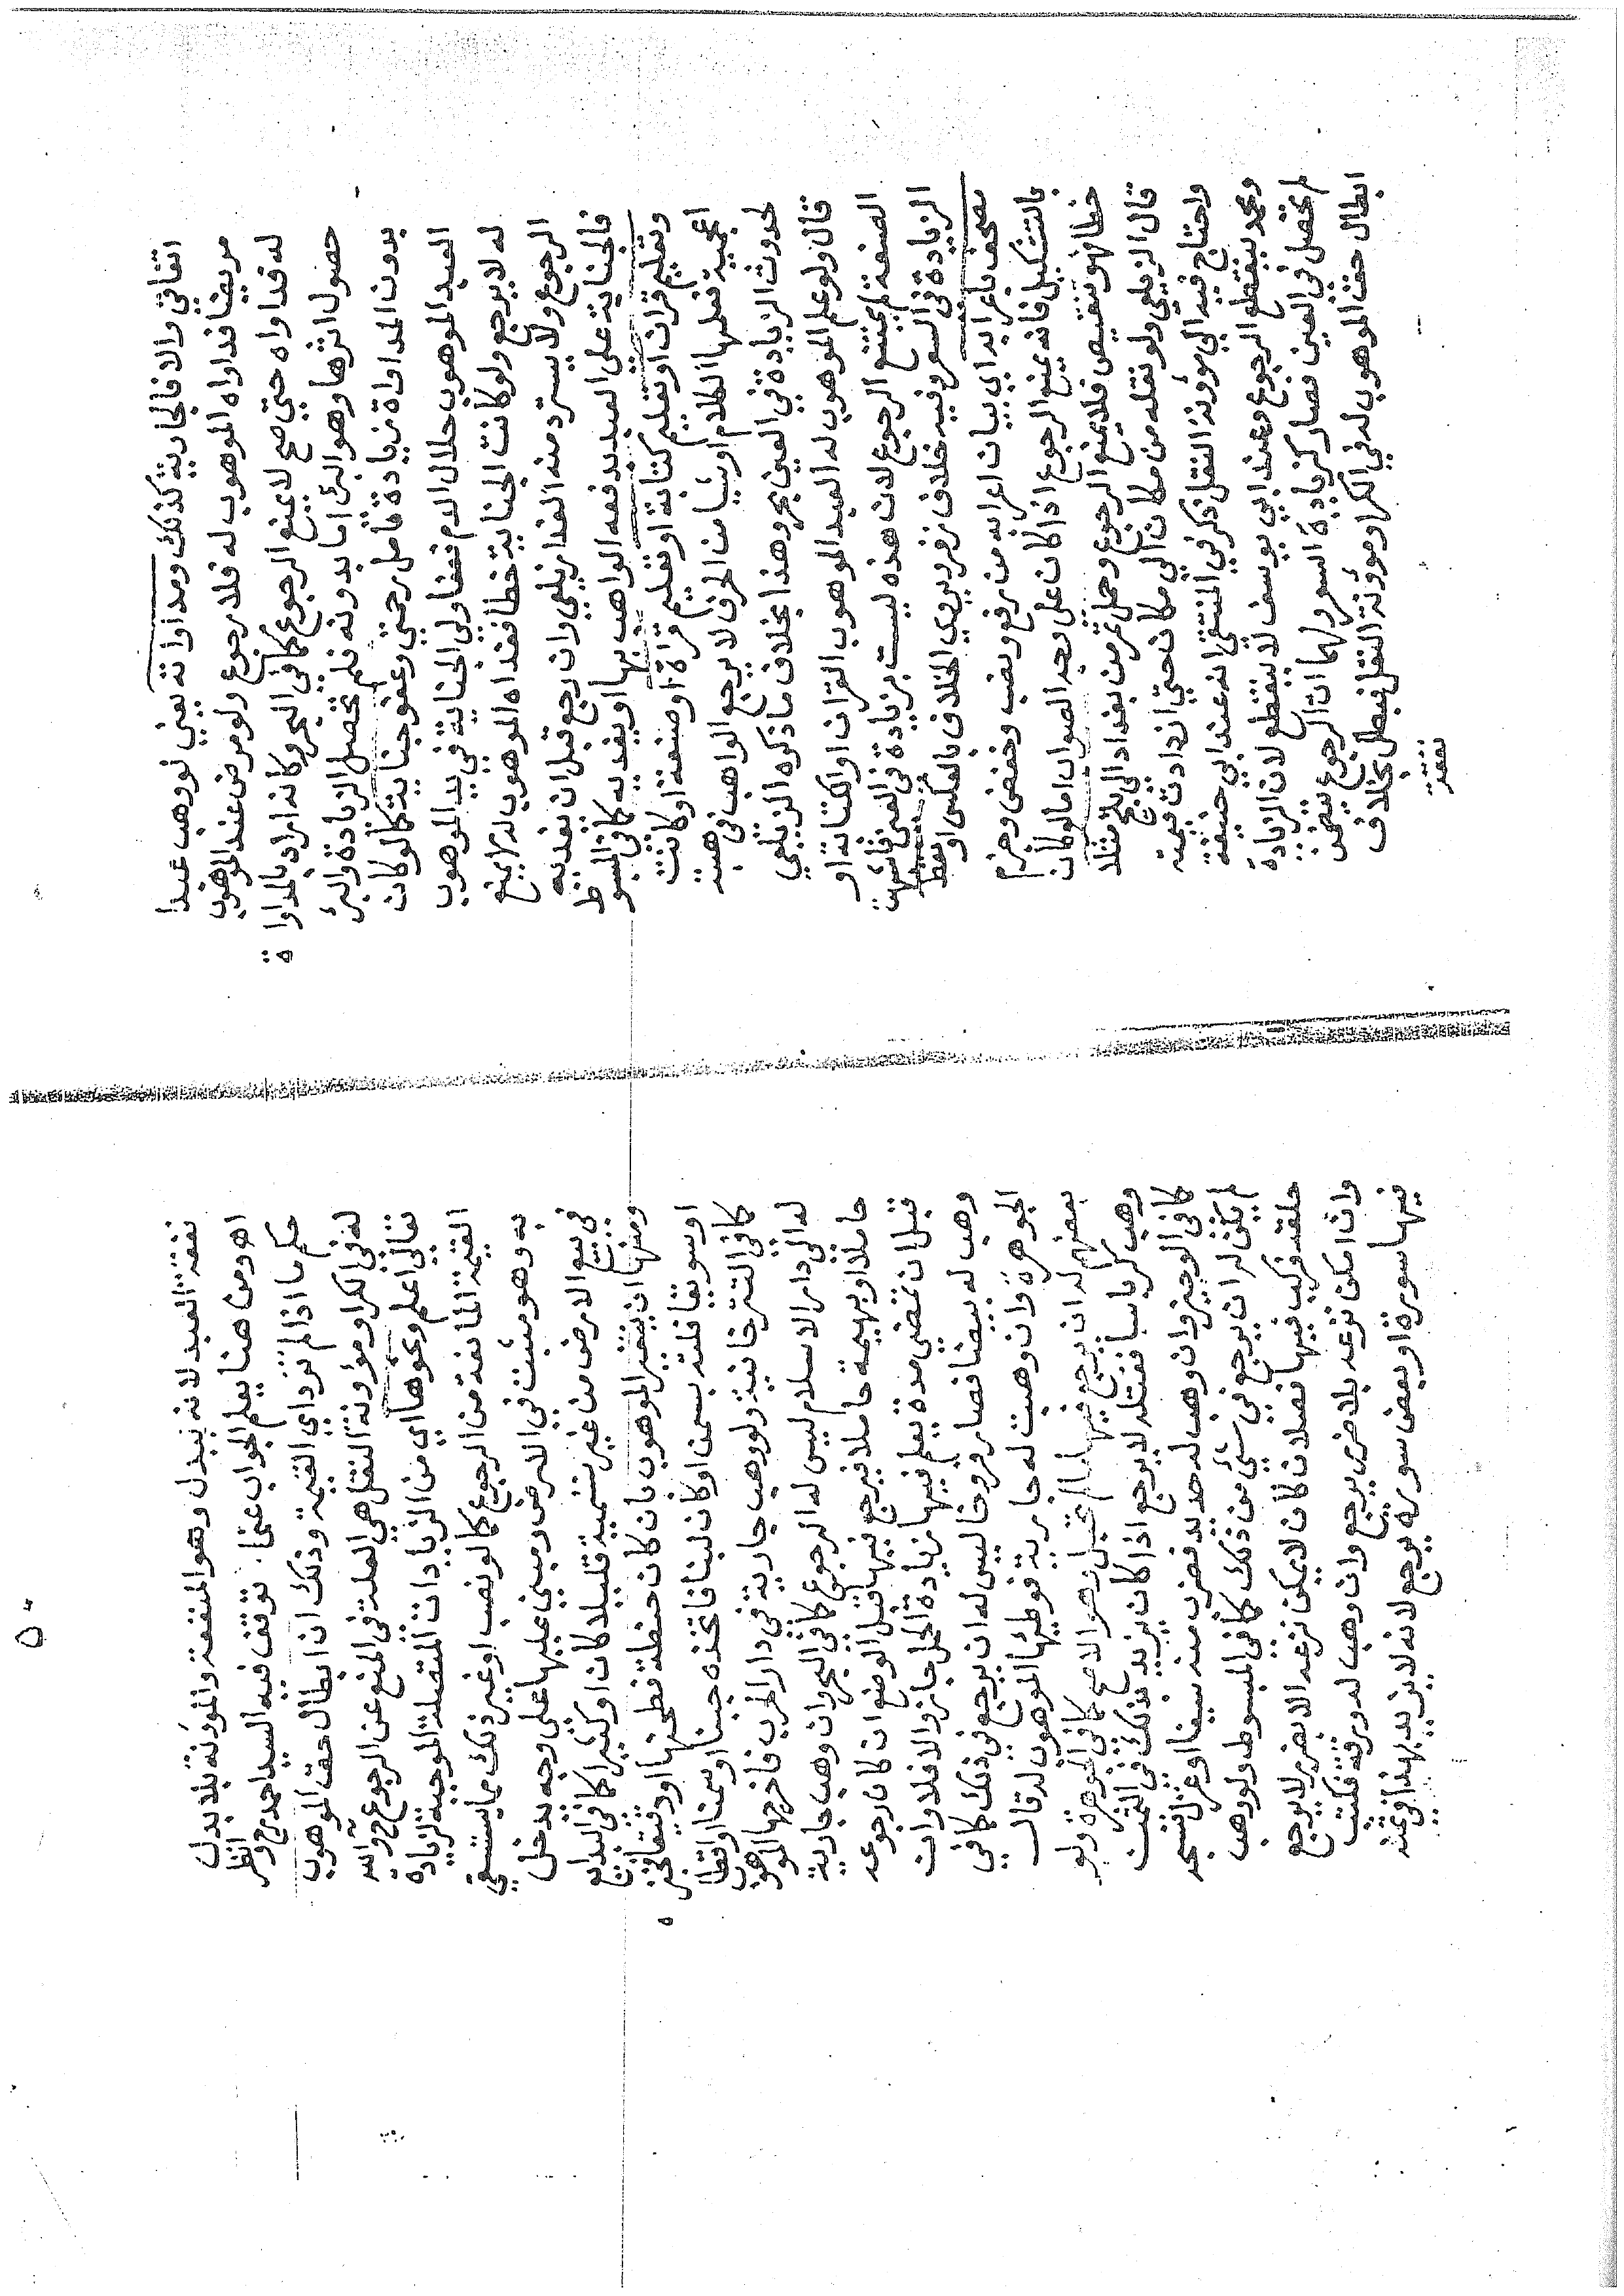 اتقاني والا فالجارية كذلك ومداواته يعني لو وهب عبدا
مريضا فداواه الموهوب له فلا رجوع ولو مرض عند الموهوب
له فداواه حتي صح لا يمنع الرجوع كما في البحر وكانه اراد بالمداواة
حصول اثرها وهو البرئ اما بدونه فلم تحصل الزيادة والبرئ
بدون المداواة زيادة تامل رحمتي وعفو جناية كما لو كان
العبد الموهوب حلال الدم فعفا ولي الجناية في يد الموهوب
له لا يرجع ولو كانت الجناية خطا ففداه الموهوب له لا يمنع
الرجوع ولا يسترد منه الفدا زيلعي وان رجع قبل ان يفديه
فالجناية على العبد يدفعه الواهب بها او يفديه كما في المبسوط
وتعليم قران او تعليم كتابة او تعليم قراة او صنعة او كانت
اعجمية فعلمها الكلام او شيا من الحرف لا يرجع الواهب في هبته
لحدوث الزيادة في العين بحر وهذا بخلاف ما ذكره الزيلعي
قال ولو علم الموهوب له العبد الموهوب القران او الكتابة او
الصنعة لم يمتنع الرجوع لان هذه ليست بزيادة في العين فاشبهت
الزيادة في السعر وفيه خلاف زفر ويروي الخلاف بالعكس او نقط
مصحف باعرابه اي بيان اعرابه من رفع ونصب وخفض وجزم
بالتشكيل فانه يمنع الرجوع اذا كان على نهج الصواب اما لو كان
خطا فهو تنقيص فلا يمنع الرجوع وحمل تمر من بغداد الي بلخ مثلا
قال الزيلعي ولو نقله من مكان الي مكان حتي ازدادت قيمته
واحتاج فيه الي مؤونة النقل ذكر في المنتقي انه عند ابي حنيفة
ومحمد ينقطع الرجوع وعند ابي يوسف لا ينقطع لان الزيادة
لم تحصل في العين فصار كزيادة السعر ولهما ان الرجوع يتضمن
ابطال حق الموهوب له في الكرا ومؤونة النقل فبطل بخلاف
نفقة
نفقة العبد لانه ببدل وهو المنفعة والمؤنة بلا بدل
اهـ ومن هنا يعلم الجواب عما توقف فيه السيد احمد ح وانظر
حكم ما اذا لم تزداي القيمة وذلك ان ابطال حق الموهوب
له في الكرا ومؤونة النقل هي العلة في المنع عن الرجوع ح والله
تعالي اعلم ونحوها اي من الزيادات المتصلة الموجبة لزيادة
القيمة المانعة من الرجوع كما لو نصب او غير ذلك مما يستقي
به وهو مثبت في الارض ومبني عليها على وجه يدخل
في بيع الارض من غير تسمية قليلا كان او كثيرا كما في البدايع
ومنها ان يتغير الموهوب بان كان حنطة فطحنها او دقيقا فخبزه
او سويقا فلته بسمن او كان لبنا فاتخذه جبنا او سمنا او اقطا
كما في التترخانية ولو وهب جارية في دار الحرب فاخرجها الموهوب
له الي دار الاسلام ليس له الرجوع كما في البحر وان وهب جارية
حاملا او بهيمة حاملا فيرجع فيها قبل الوضع ان كان رجوعه
قبل ان تمضي مدة يعلم فيها زيادة الحمل جاز والا فلا وان
وهب له بيضا فصار فروخا ليس له ان يرجع في ذلك كما في
الجوهرة وان وهبت له جارية فوطيها الموهوب له قال
بعضهم له ان يرجع فيها ما لم تحبل وهو الاصح كما في الجوهرة ولو
وهب كرباسا ففتله لا يرجع اذا كان يزيد بذلك في الثمن
كما في الوجيز وان وهب له حديد فضرب منه سيفا او غزل فنسجه
لم يكن له ان يرجع في شئ من ذلك كما في المبسوط ولو وهب
حلقة فركب فيها فصا ان كان لا يمكن نزعه الا بضرر لا يرجع
وان امكن نزعه بلا ضرر يرجع وان وهب له ورقة فكتب
فيها سورة او بعض سورة يرجع لانه لا يزيد بهذا في ثمنه